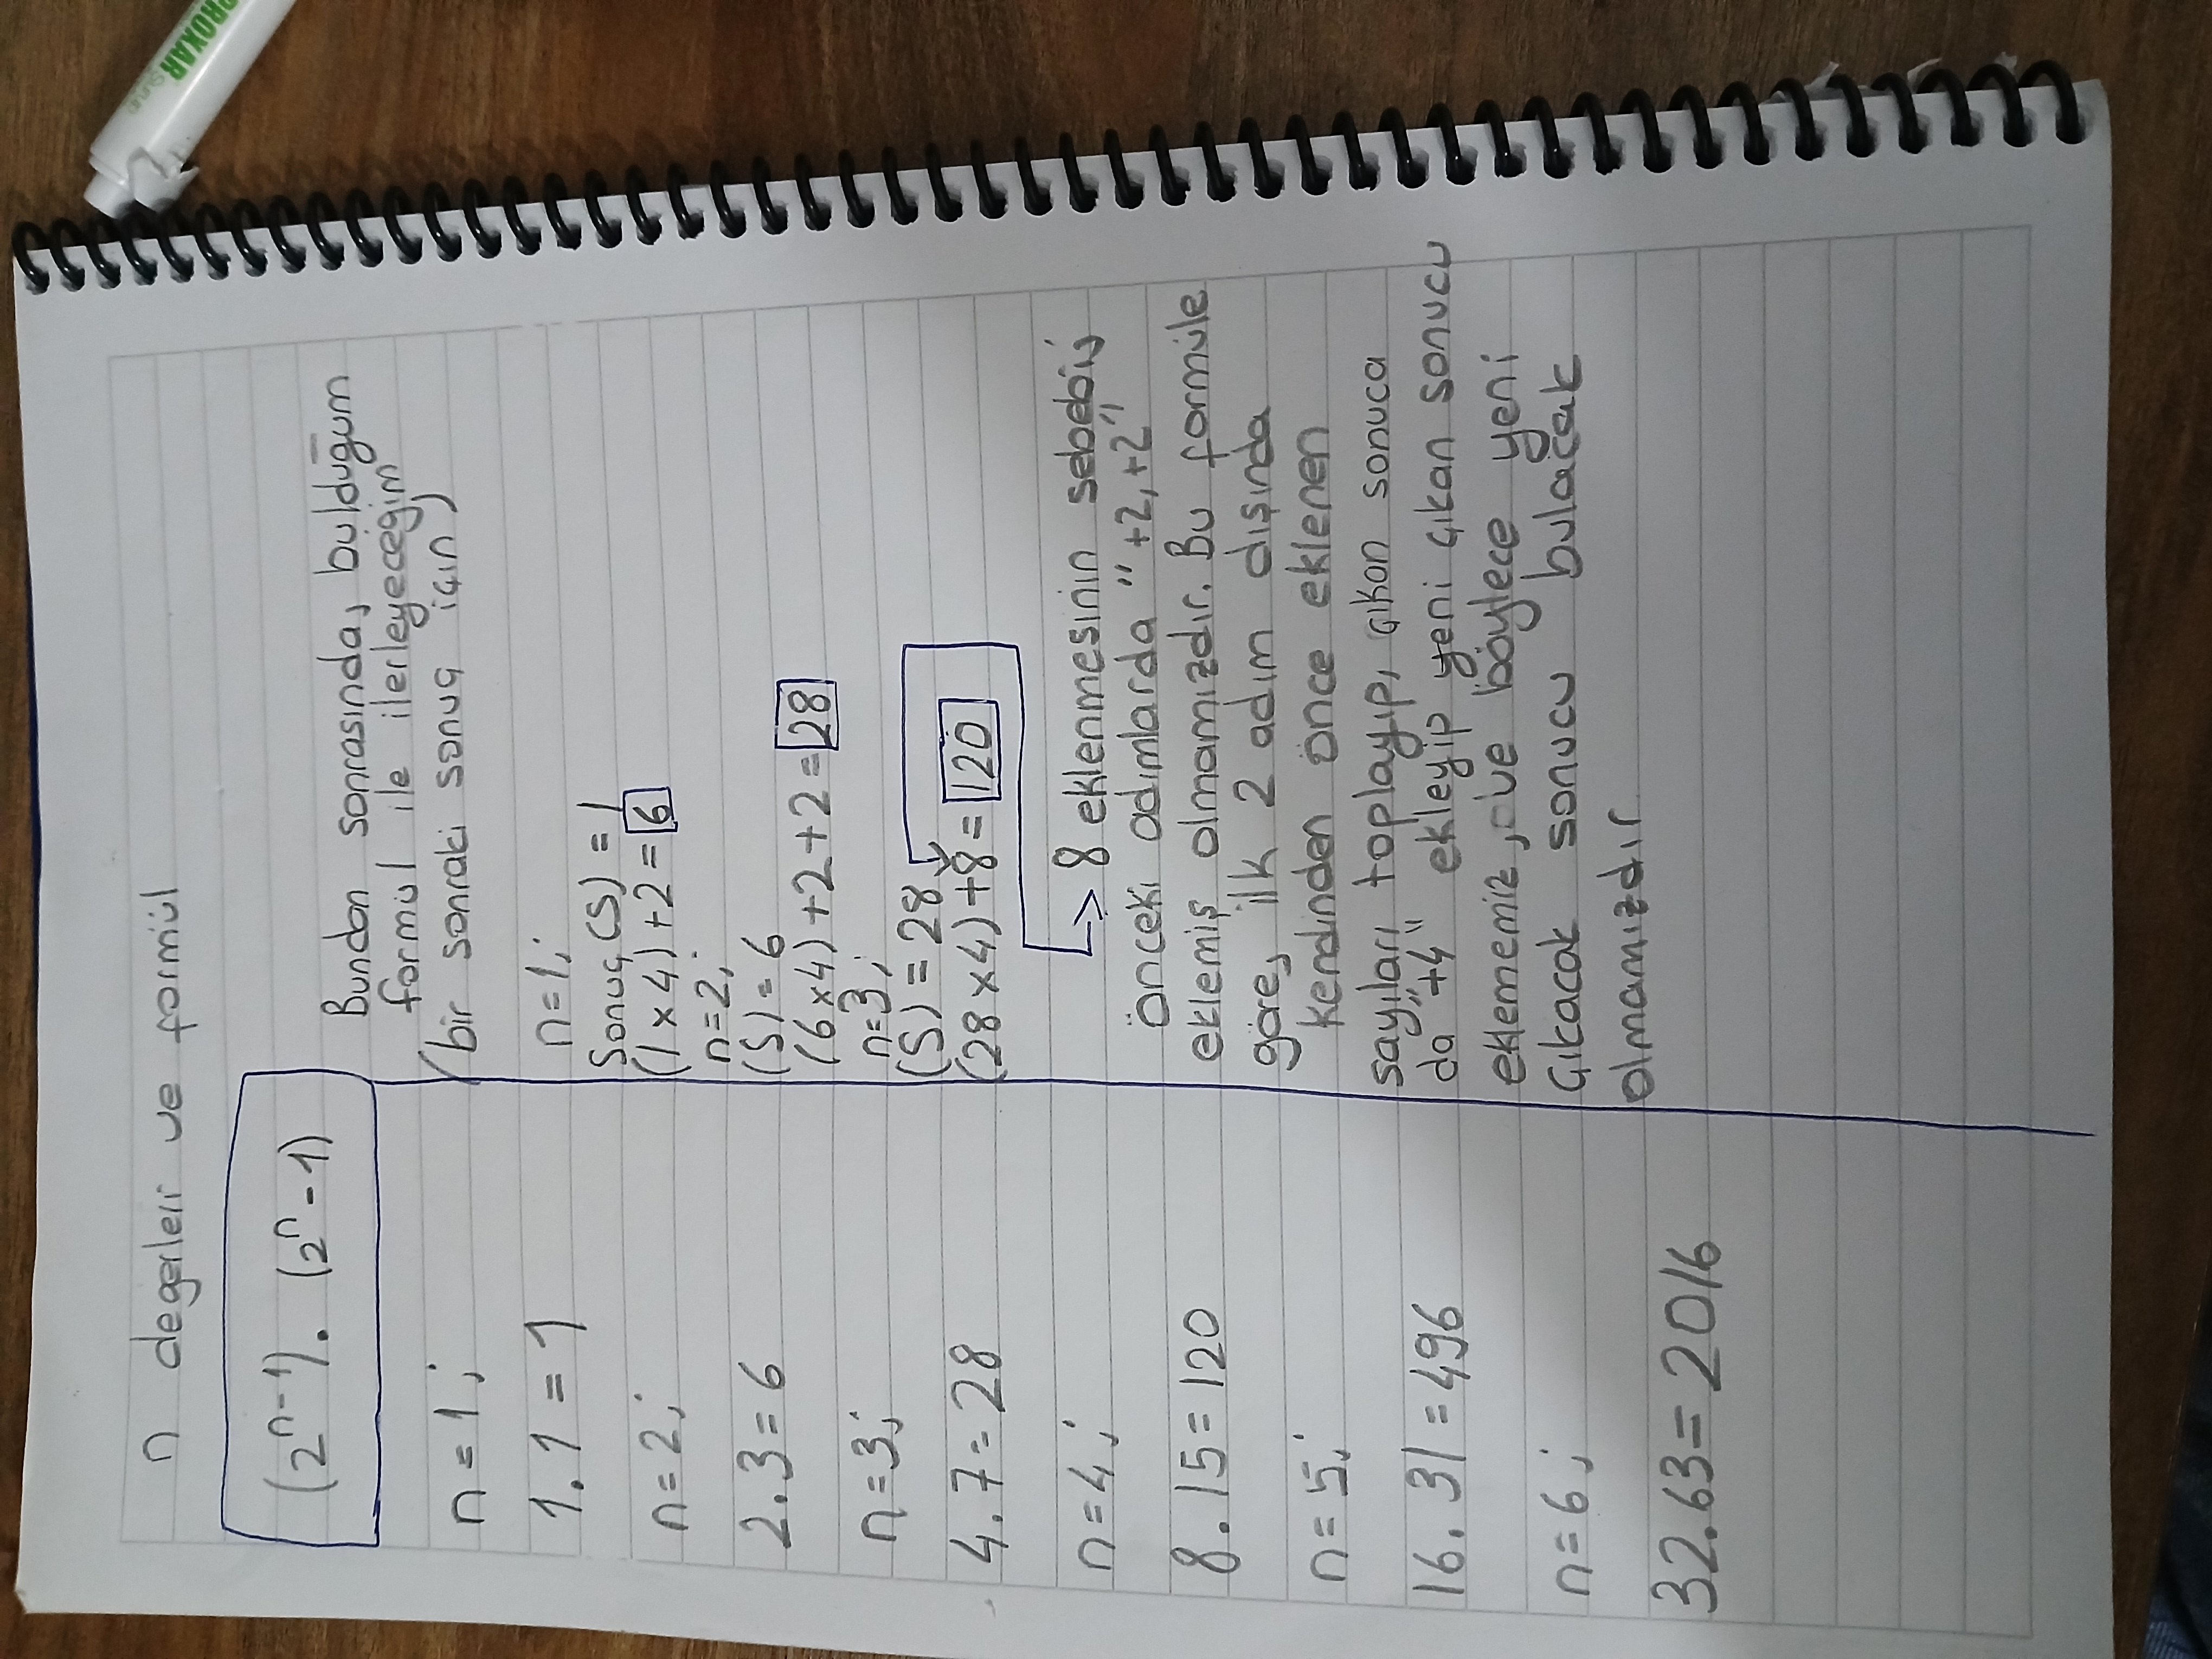 PROXAR
n degerleri ve formül
(2ⁿ⁻¹). (2ⁿ-1)
n=1;
1.1=1
n=2;
2.3=6
n=3;
4.7=28
n=4;
8.15=120
n=5;
16.31=496
n=6;
32.63=2016
Bundan sonrasında, bulduğum
formül ile ilerleyeceğim
(bir sonraki sonuç için)
n=1;
Sonuç(S)=1
(1x4)+2=6
n=2;
(S)=6
(6x4)+2+2=28
n=3;
(S)=28
(28x4)+8=120
→8 eklenmesinin sebebi;
önceki adımlarda "+2,+2"
eklemiş olmamızdır. Bu formüle
göre, ilk 2 adım dışında
kendinden önce eklenen
sayıları toplayıp, çıkan sonuca
da "+4" ekleyip yeni çıkan sonucu
eklememiz, ve böylece yeni
çıkacak sonucu bulacak
olmamızdır